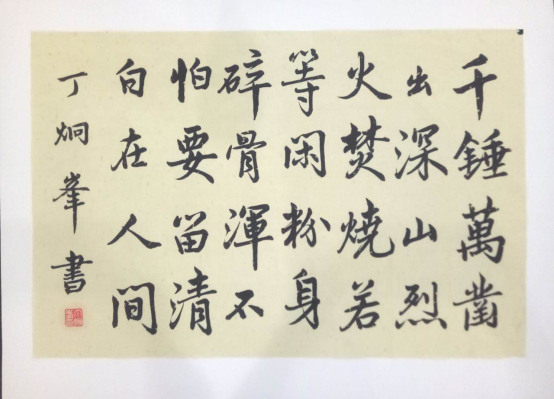 千錘萬凿
出深山烈
火焚燒若
等閑粉身
碎骨渾不
怕要留清
白在人間
丁炯峯書